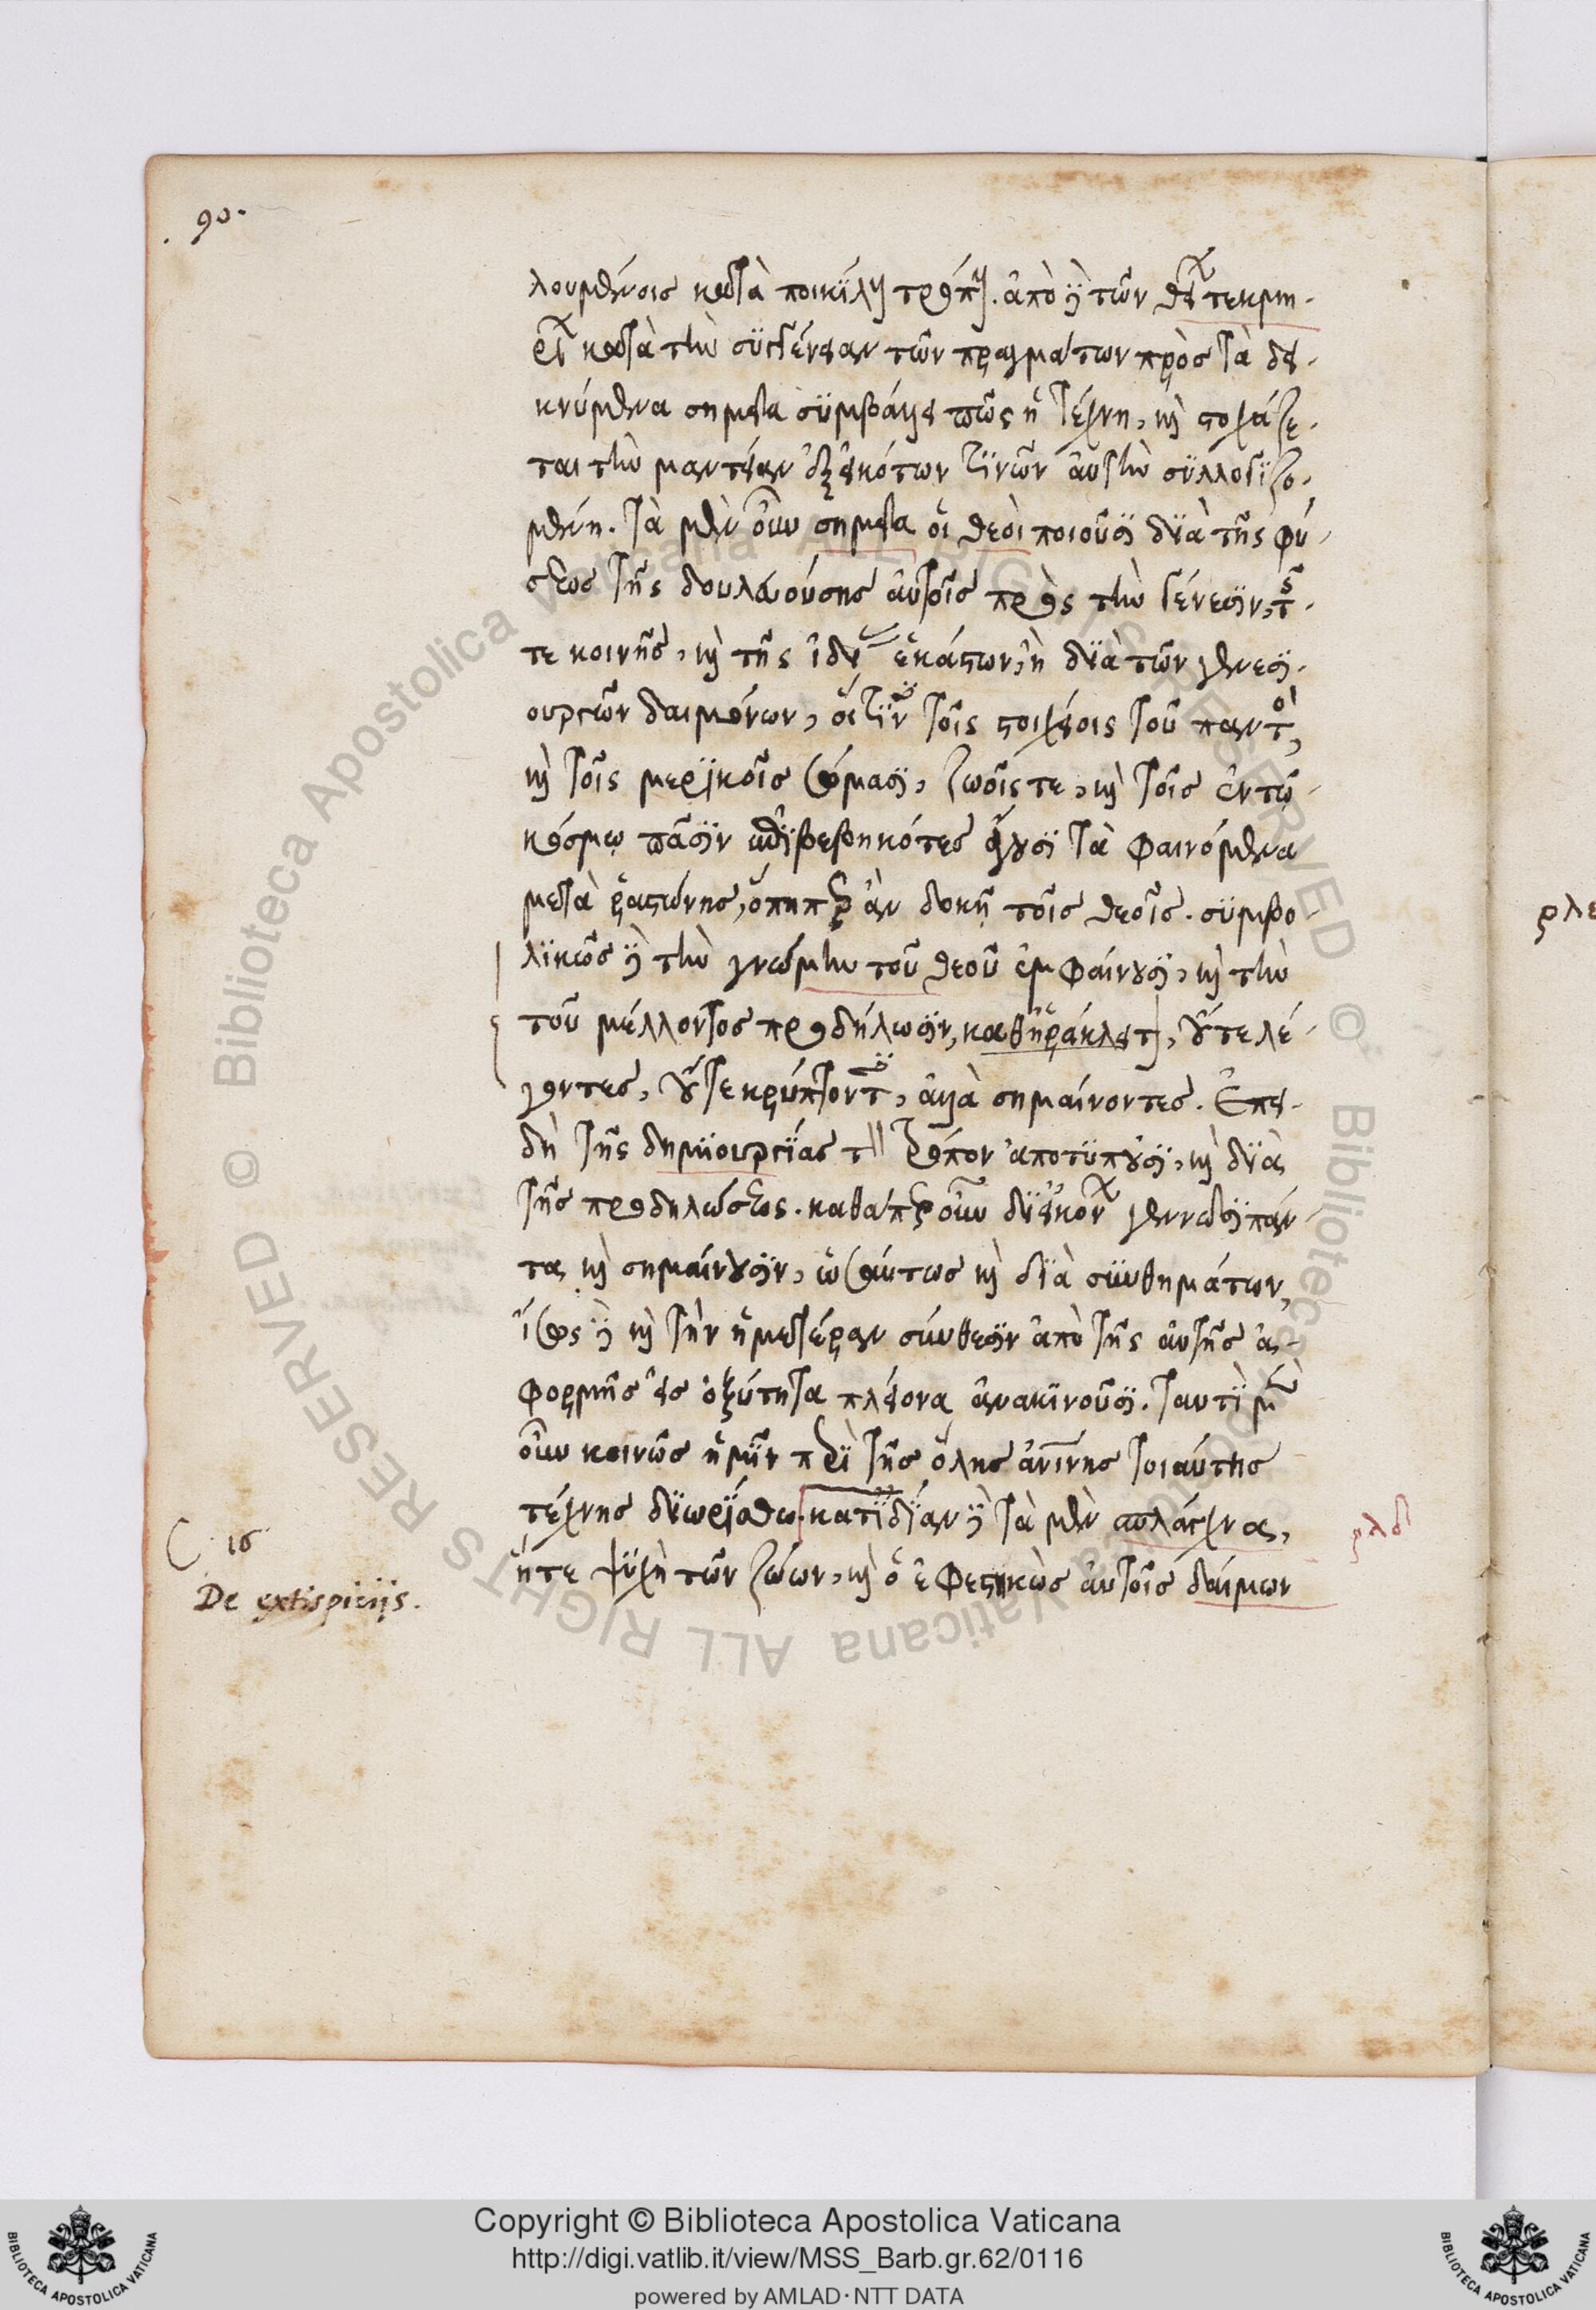 90.
λουμένοις κατὰ ποικίλους τρόπους. ἀπὸ δὲ τῶν θείων τεκμη-
ρίων κατὰ τὴν συγγένειαν τῶν πραγμάτων πρὸς τὰ δει-
κνύμενα σημεῖα συμβάλλει πῶς ἡ τέχνη, καὶ στοχάζε-
ται τὴν μαντείαν ἐξ εἰκότων τινῶν αὐτὴν συλλογιζο-
μένη. τὰ μὲν οὖν σημεῖα οἱ θεοὶ ποιοῦσι διὰ τῆς φύ-
σεως τῆς δουλευούσης αὐτοῖς πρὸς τὴν γένεσιν, τῆς
τε κοινῆς, καὶ τῆς ἰδίας ἑκάστων, ἢ διὰ τῶν γενεσι-
ουργῶν δαιμόνων, οἵτινες τοῖς στοιχείοις τοῦ παντὸς,
καὶ τοῖς μερικοῖς σώμασι, ζώοις τε, καὶ τοῖς ἐν τῷ
κόσμῳ πᾶσιν ἐπιβεβηκότες ἄγουσι τὰ φαινόμενα
μετὰ ῥαστώνης, ὅπηπερ ἂν δοκῇ τοῖς θεοῖς. συμβο-
λικῶς δὲ τὴν γνώμην τοῦ θεοῦ ἐμφαίνουσι, καὶ τὴν
τοῦ μέλλοντος προδήλωσιν, καθ' ἡράκλειτον, οὔτε λέ-
γοντες, οὔτε κρύπτοντες, ἀλλὰ σημαίνοντες. Ἐπει-
δὴ τῆς δημιουργίας τὸν τρόπον ἀποτυποῦσι, καὶ διὰ
τῆς προδηλώσεως. καθάπερ οὖν δι' εἰκόνων γεννῶσι πάν-
τα, καὶ σημαίνουσιν, ὡσαύτως καὶ διὰ συνθημάτων,
ἴσως δὲ καὶ τὴν ἡμετέραν σύνθεσιν ἀπὸ τῆς αὐτῆς ἀ-
φορμῆς εἰς ὀξύτητα πλείονα ἀνακινοῦσι. ταυτὶ μὲν
οὖν κοινῶς ἡμῖν περὶ τῆς ὅλης ἀνθρωπίνης τοιαύτης
τέχνης διωρίσθω. κατ' ἰδίαν δὲ τὰ μὲν σπλάγχνα,
ἥ τε ψυχὴ τῶν ζώων, καὶ ὁ ἐφεστηκὼς αὐτοῖς δαίμων
C. 16
De extispicijs.
ρλδ
ρλε
Copyright © Biblioteca Apostolica Vaticana
http://digi.vatlib.it/view/MSS_Barb.gr.62/0116
powered by AMLAD·NTT DATA
BIBLIOTECA APOSTOLICA VATICANA
BIBLIOTECA APOSTOLICA VATICANA
© Biblioteca Apostolica Vaticana ALL RIGHTS RESERVED © Biblioteca Apostolica Vaticana ALL RIGHTS RESERVED